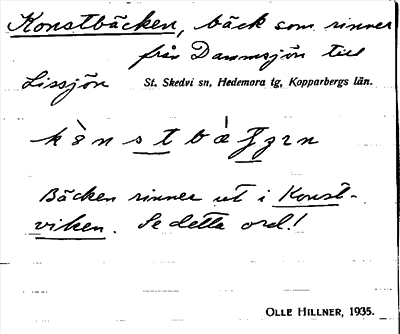 Konstbäcken, bäck som rinner
från Dammsjön till
Lissjön St. Skedvi sn, Hedemora tg, Kopparbergs län.
Bäcken rinner ut i Konst-
viken. Se detta ord!
OLLE HILLNER, 1935.